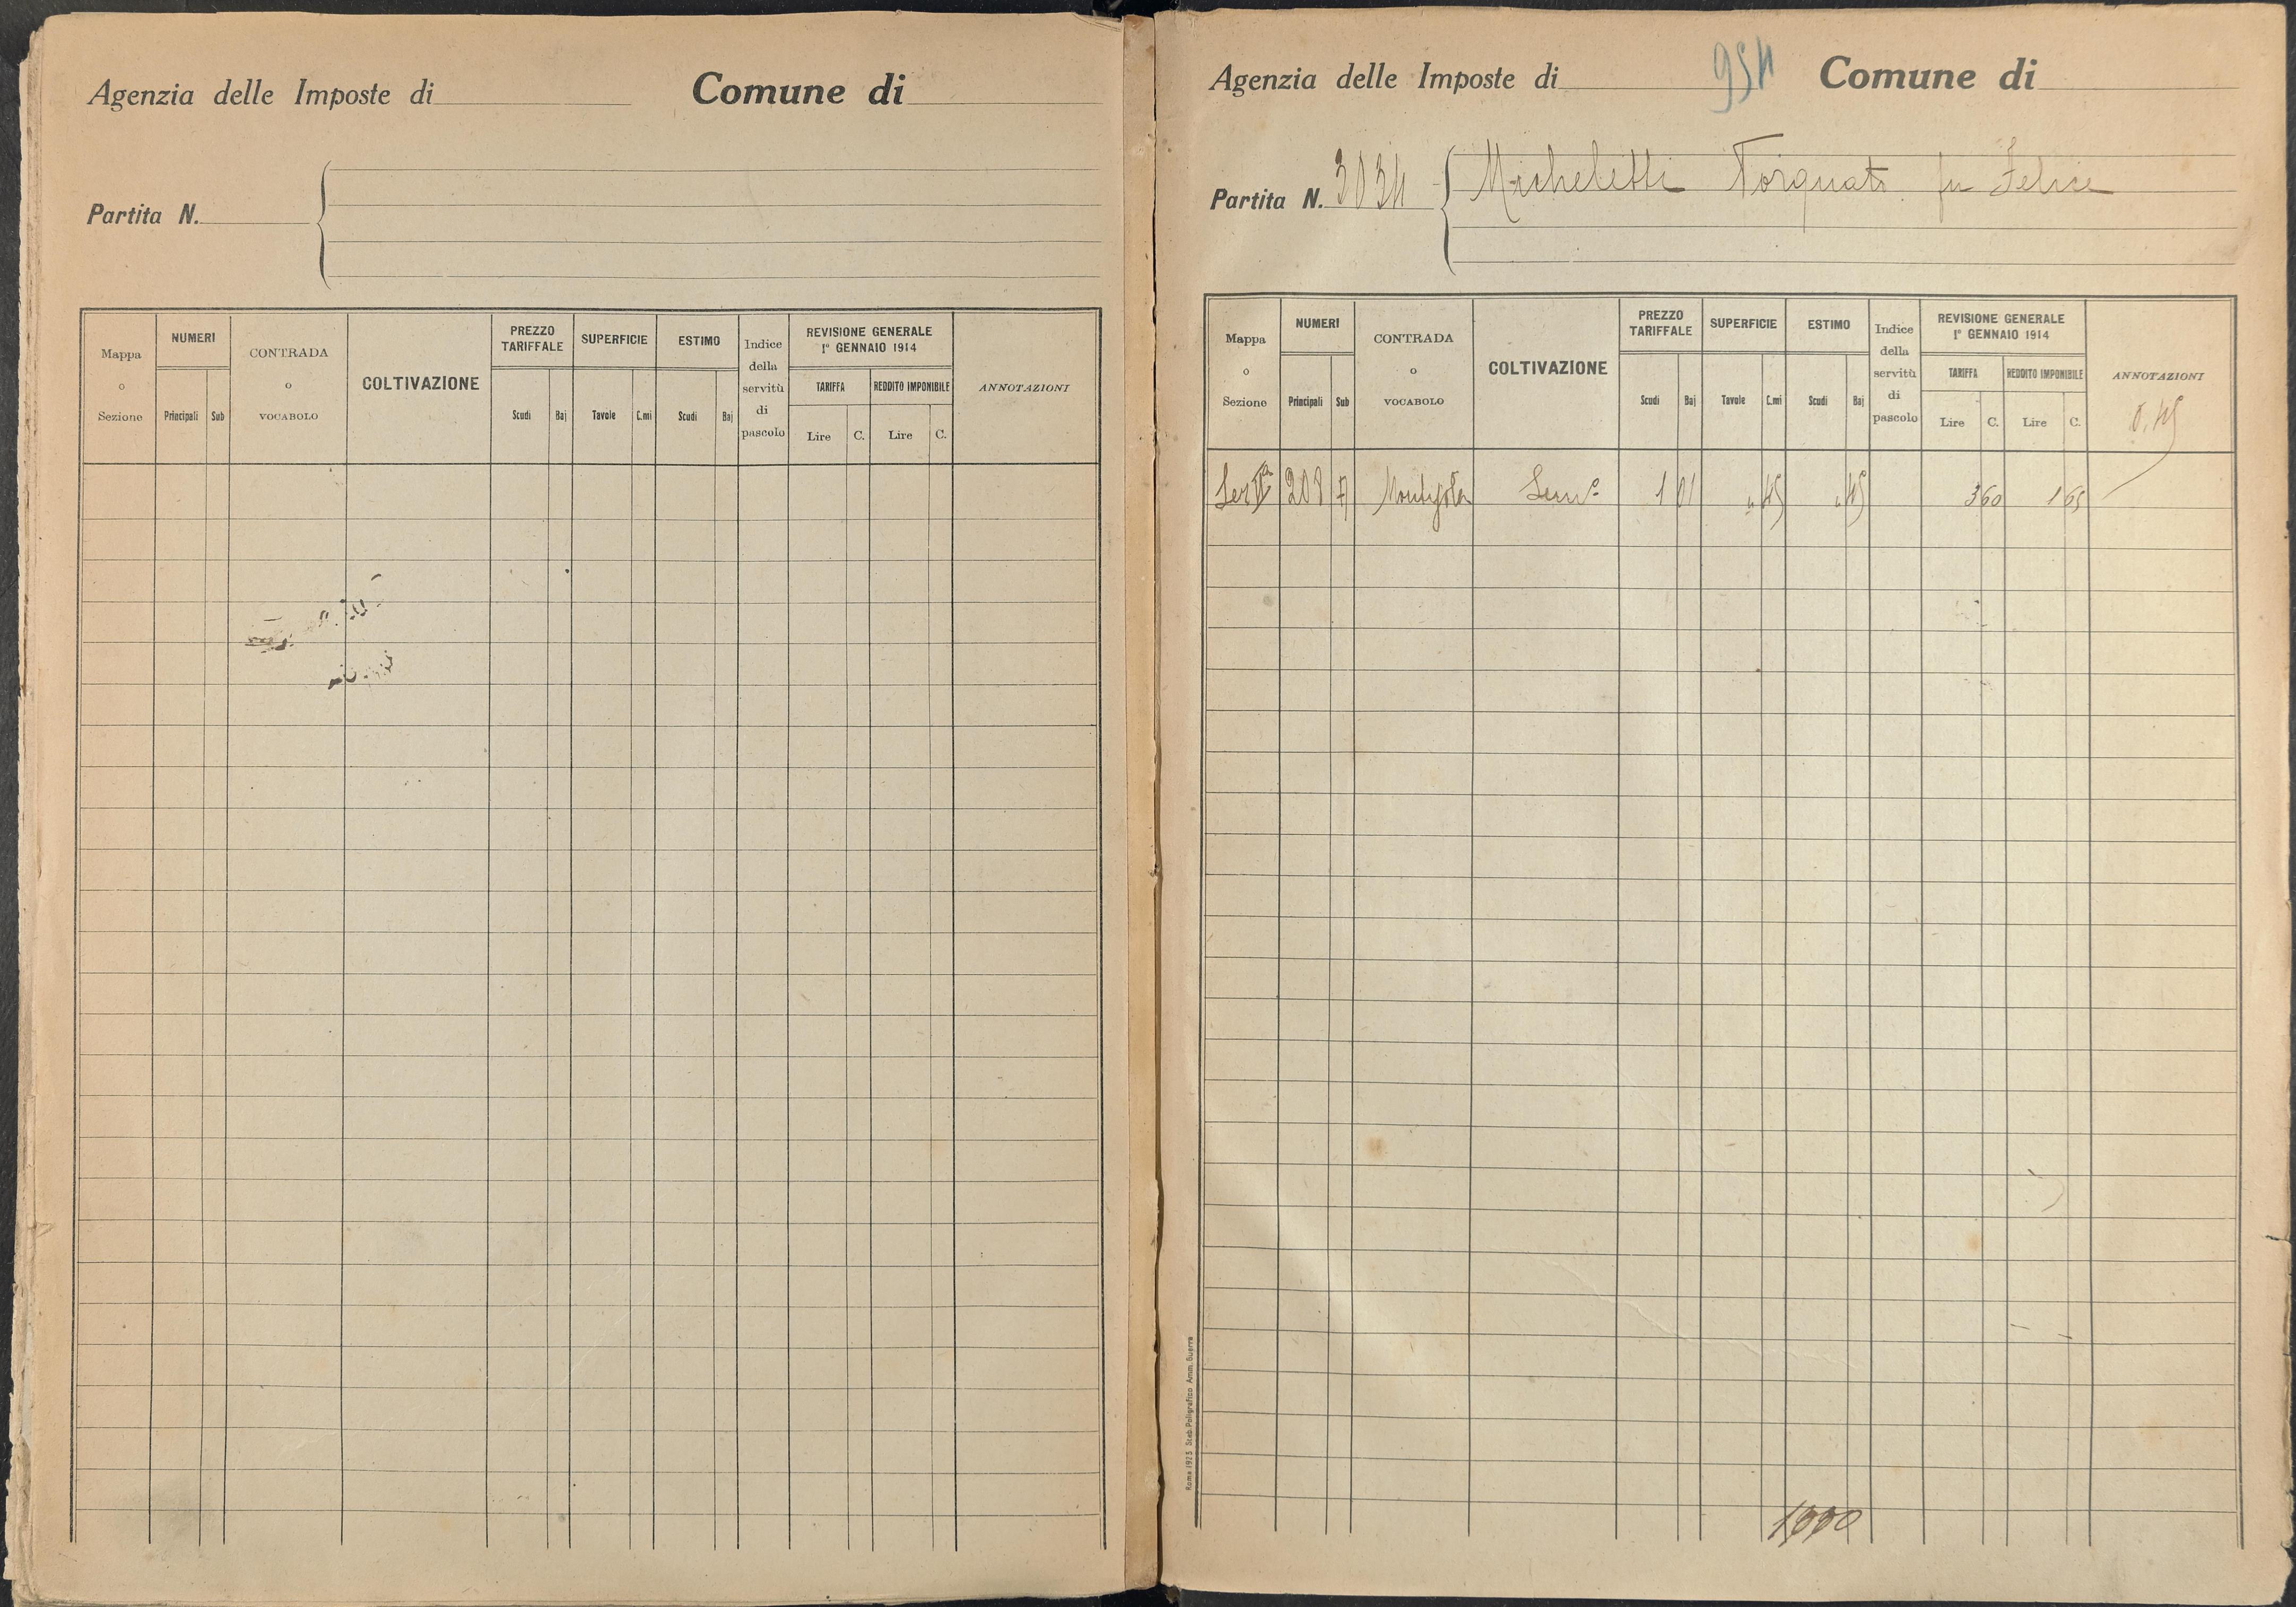 Agenzia delle Imposte di Comune di
Partita N.
Mappa o Sezione NUMERI Principali Sub CONTRADA o VOCABOLO COLTIVAZIONE PREZZO TARIFFALE Scudi Baj SUPERFICIE Tavole C.mi ESTIMO Scudi Baj Indice della servitù di pascolo REVISIONE GENERALE 1° GENNAIO 1914 TARIFFA Lire C. REDDITO IMPONIBILE Lire C. ANNOTAZIONI
954
Agenzia delle Imposte di Comune di
Partita N. 3034 Micheletti Torquato fu Felice
Mappa o Sezione NUMERI Principali Sub CONTRADA o VOCABOLO COLTIVAZIONE PREZZO TARIFFALE Scudi Baj SUPERFICIE Tavole C.mi ESTIMO Scudi Baj Indice della servitù di pascolo REVISIONE GENERALE 1° GENNAIO 1914 TARIFFA Lire C. REDDITO IMPONIBILE Lire C. ANNOTAZIONI
0.45
208 Sem° 1 01 " 45 " 45 3 60 1 65
1000
Roma 1923 Stab. Poligrafico Amm. Guerra